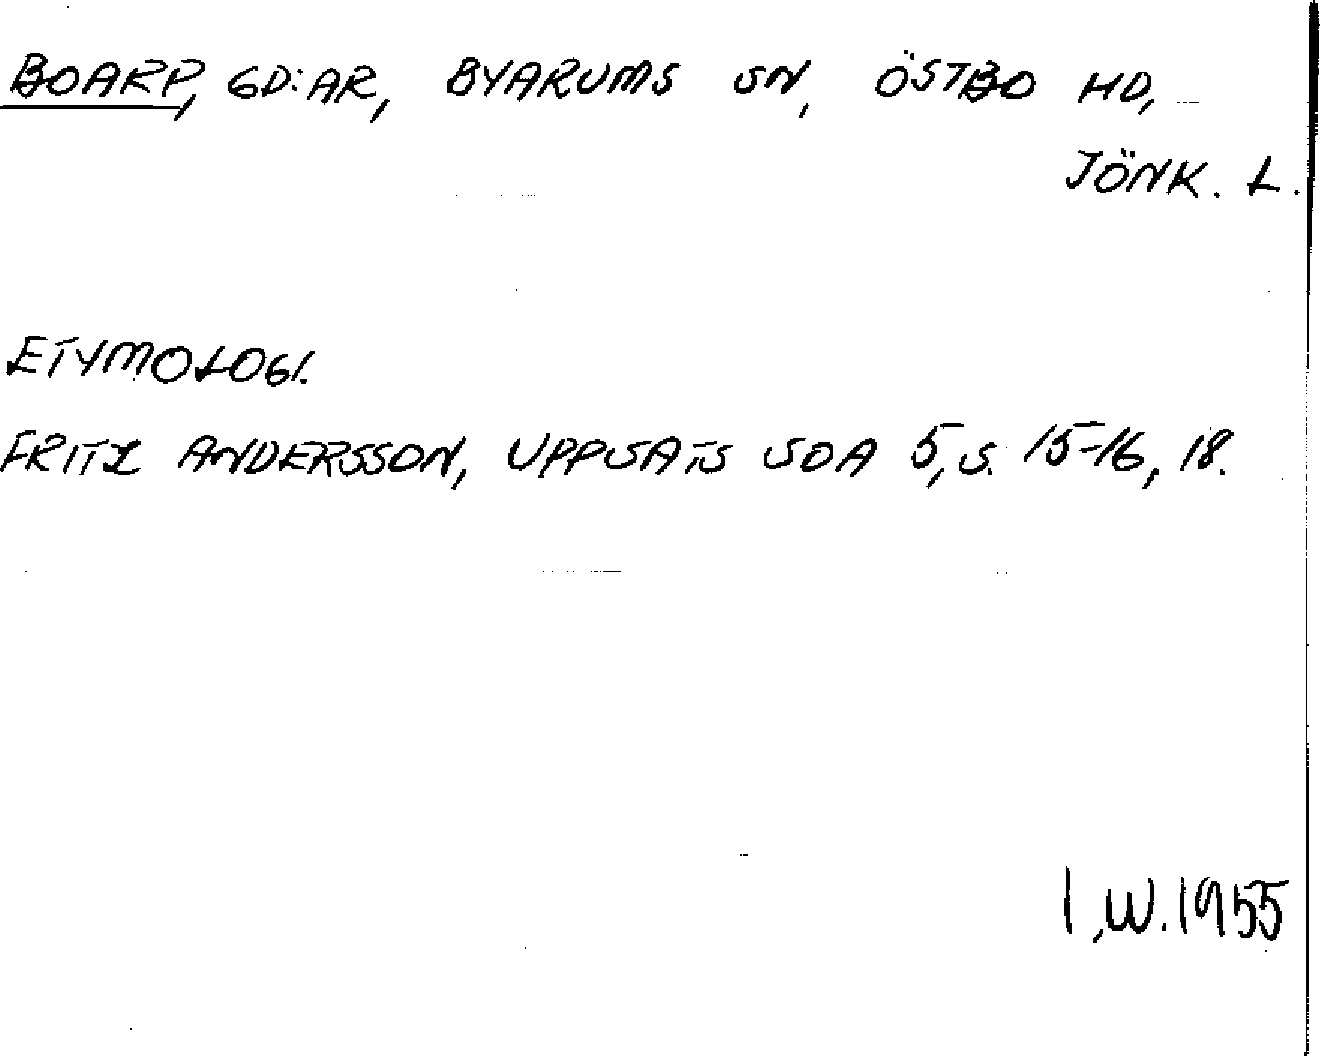 BOARP, GD:AR, BYARUMS SN, ÖSTBO HD,
JÖNK. L.
ETYMOLOGI.
FRITZ ANDERSSON, UPPSATS SOA 5, S. 15-16, 18.
I.W. 1955